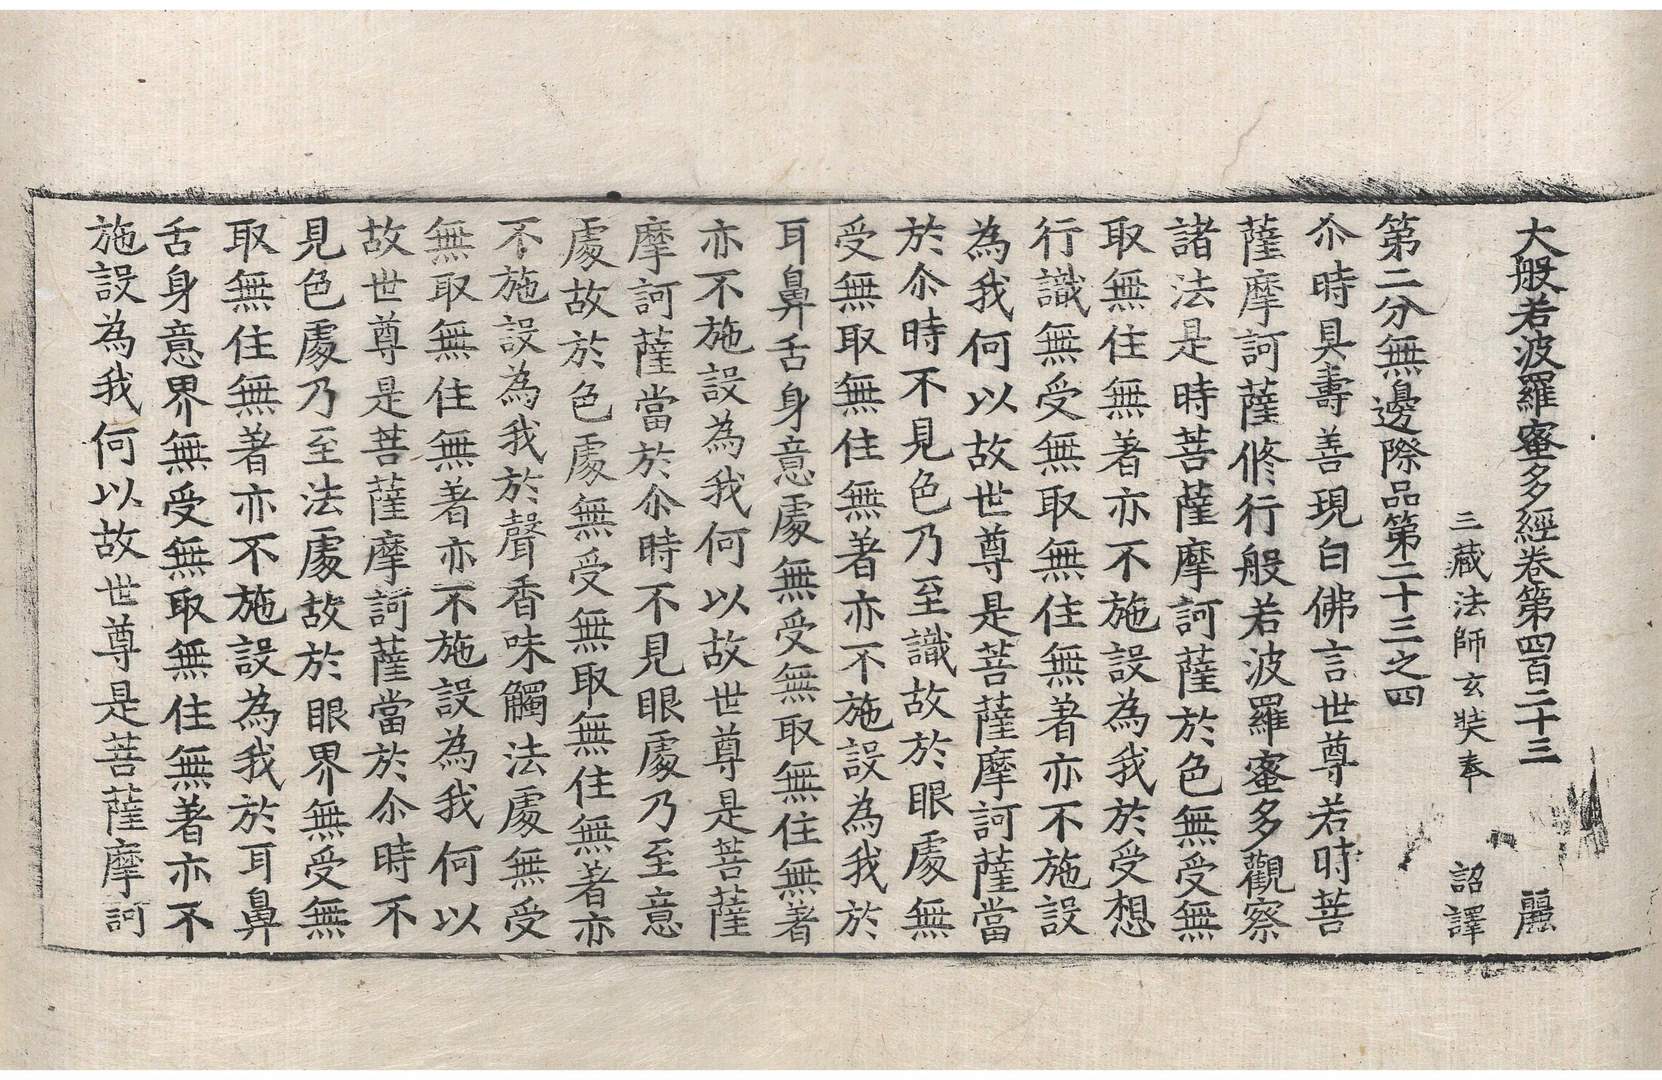 大般若波羅蜜多經卷第四百二十三 麗
三藏法師玄奘奉 詔譯
第二分無邊際品第二十三之四
尒時具壽善現白佛言世尊若時菩
薩摩訶薩修行般若波羅蜜多觀察
諸法是時菩薩摩訶薩於色無受無
取無住無著亦不施設為我於受想
行識無受無取無住無著亦不施設
為我何以故世尊是菩薩摩訶薩當
於尒時不見色乃至識故於眼處無
受無取無住無著亦不施設為我於
耳鼻舌身意處無受無取無住無著
亦不施設為我何以故世尊是菩薩
摩訶薩當於尒時不見眼處乃至意
處故於色處無受無取無住無著亦
不施設為我於聲香味觸法處無受
無取無住無著亦不施設為我何以
故世尊是菩薩摩訶薩當於尒時不
見色處乃至法處故於眼界無受無
取無住無著亦不施設為我於耳鼻
舌身意界無受無取無住無著亦不
施設為我何以故世尊是菩薩摩訶